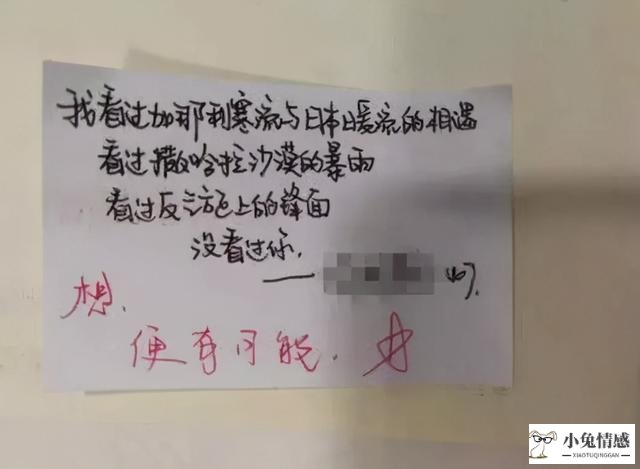 我看过加那利寒流与日本暖流的相遇
看过撒哈拉沙漠的暴雨
看过反气旋上的锋面
没看过你.
——
想.
便有可能.
小兔情感
XIAOTUQINGGAN